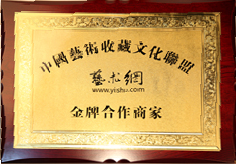 中國藝術收藏文化聯盟
藝术網
www.yishu.com
金牌合作商家